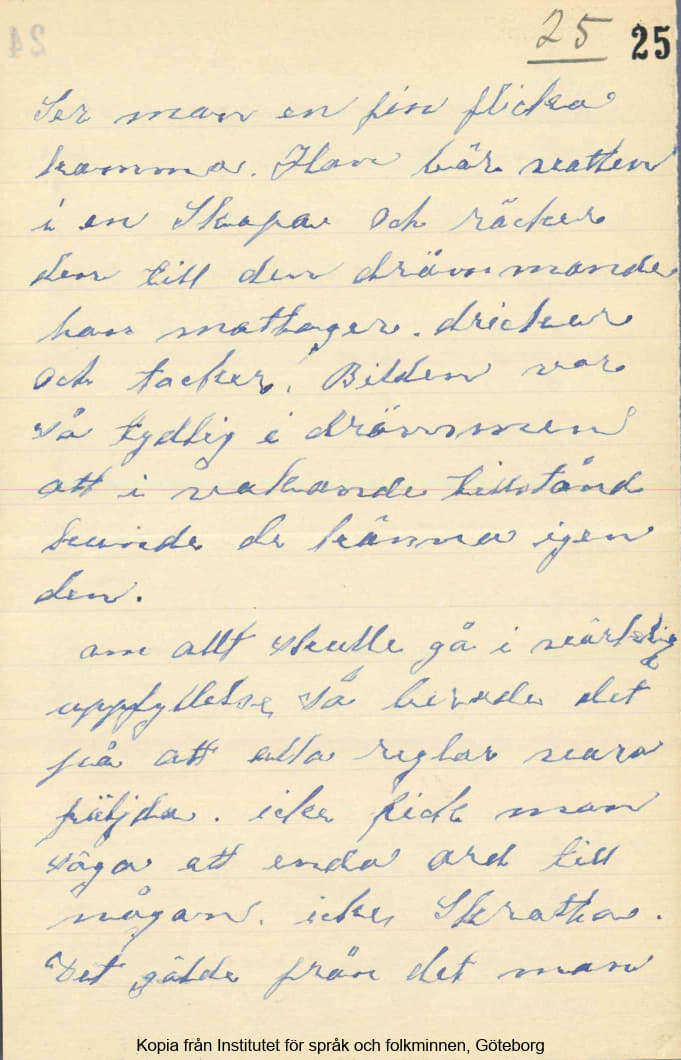 25 25
24
Ser man en fin flicka
komma. Hon bär vatten
i en Skopa och räcker
den till den drömmande
han mottager. dricker
och tacker. Bilden var
så tydlig i drömmen
att i vakande tillstånd
kunde de känna igen
den.
om allt skulle gå i värklig
uppfyllelse så berode det
på att alla reglar vara
följda. icke fick man
säga ett enda ord till
någon. icke Skratta.
Det gälde från det man
Kopia från Institutet för språk och folkminnen, Göteborg